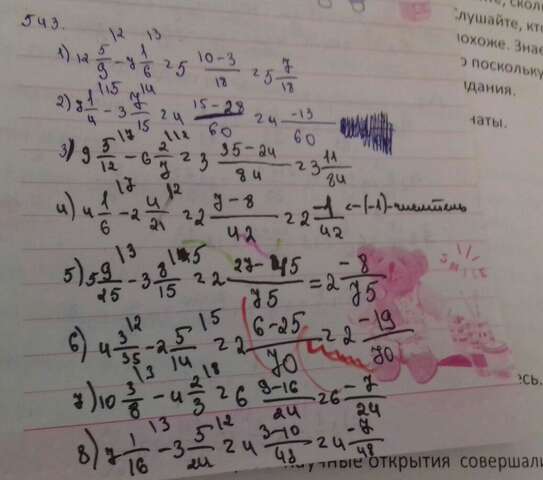 543.
1) 12 5/9 - 7 1/6 = 5 10-3/18 = 5 7/18
2) 7 1/4 - 3 7/15 = 4 15-28/60 = 4 -13/60
3) 9 5/12 - 6 2/7 = 3 35-24/84 = 3 11/84
4) 4 1/6 - 2 4/21 = 2 7-8/42 = 2 -1/42 <-(-1)-числитель
5) 5 9/25 - 3 8/15 = 2 27-45/75 = 2 -8/75
6) 4 3/35 - 2 5/14 = 2 6-25/70 = 2 -19/70
7) 10 3/8 - 4 2/3 = 6 9-16/24 = 6 -7/24
8) 7 1/16 - 3 5/24 = 4 3-10/48 = 4 -7/48
слушайте, кто
похоже. Знае
о поскольку
дания.
наты.
SMILE
есь.
научные открытия совершали